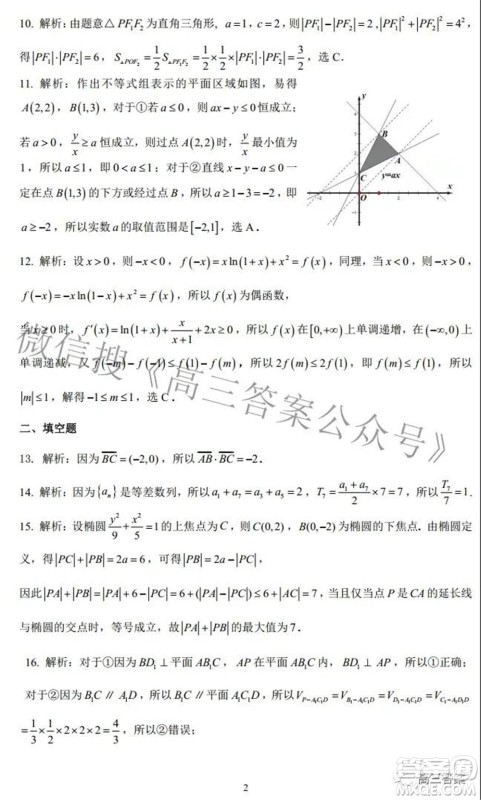 10. 解析:由题意△PF₁F₂为直角三角形, a=1, c=2, 则|PF₁|-|PF₂|=2, |PF₁|²+|PF₂|²=4²,
得|PF₁|·|PF₂|=6, S△POF₂=1/2 S△PF₁F₂=1/2×1/2×6=3/2, 选 C.
11. 解析:作出不等式组表示的平面区域如图, 易得
A(2,2), B(1,3), 对于①若a≤0, 则ax-y≤0恒成立;
若a>0, y/x≥a恒成立, 则过点A(2,2)时, y/x最小值为
1, 所以a≤1, 即0<a≤1; 对于②直线x-y-a≤0一
定在点B(1,3)的下方或经过点B, 所以a≥1-3=-2, 即
a≥-2, 所以实数a的取值范围是[-2,1], 选 A.
y
B
A
C
y=ax
O
x
12. 解析:设x>0, 则-x<0, f(-x)=x ln(1+x)+x²=f(x), 同理, 当x<0, 则-x>0,
f(-x)=-x ln(1-x)+x²=f(x), 所以f(x)为偶函数,
当x≥0时, f′(x)=ln(1+x)+x/(x+1)+2x≥0, 所以f(x)在[0,+∞)上单调递增, 在(-∞,0)上
单调递减, 又f(-m)-f(-1)≤f(1)-f(m), 所以2f(m)≤2f(1), 即f(m)≤f(1), 所以
|m|≤1, 解得-1≤m≤1, 选 C.
二、填空题
13. 解析:因为BC=(-2,0), 所以AB·BC=-2.
14. 解析:因为{aₙ}是等差数列, 所以a₁+a₇=a₃+a₅=2, T₇=(a₁+a₇)/2×7=7, 所以T₇/7=1.
15. 解析:设椭圆y²/9+x²/5=1的上焦点为C, 则C(0,2), B(0,-2)为椭圆的下焦点. 由椭圆定
义, 得|PC|+|PB|=2a=6, 可得|PB|=2a-|PC|,
因此|PA|+|PB|=|PA|+6-|PC|=6+(|PA|-|PC|)≤6+|AC|=7, 当且仅当点P是CA的延长线
与椭圆的交点时, 等号成立, 故|PA|+|PB|的最大值为7.
16. 解析:对于①因为BD₁⊥平面AB₁C, AP在平面AB₁C内, BD₁⊥AP, 所以①正确;
对于②因为B₁C∥A₁D, 所以B₁C∥平面A₁C₁D, 所以V P-A₁C₁D=V B₁-A₁C₁D=V D₁-A₁C₁D=V C₁-A₁D₁D
=1/3×1/2×2×2×2=4/3, 所以②错误;
微信搜《高三答案公众号》
2
高三答案